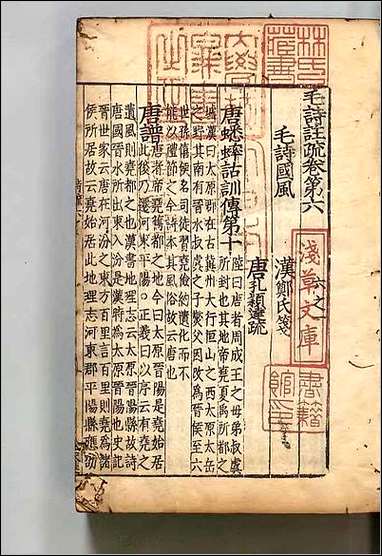 毛詩註疏卷第六 六之一
毛詩國風
漢鄭氏箋
唐孔穎達疏
唐蟋蟀詁訓傳第十
陸曰唐者周成王之母弟叔虞
所封也其地帝堯夏禹所都之
墟漢曰太原郡在古冀州太行恒山之西太原太岳
之野其南有晉水叔虞之子燮父因改爲晉侯至六
世孫僖侯名司徒習堯儉約遺化而不
能以禮節之今詩本其風俗故云唐也
唐譜
唐者帝堯舊都之地今曰太原晉陽是堯始居
此後乃遷河東平陽○正義曰以序云有堯之
遺風則堯都之也漢書地理志云太原晉陽縣故詩
唐國晉水所出東入汾是漢時爲太原晉陽也史記
晉世家云唐在河汾之東方百里言百里則堯爲諸
侯所居故云堯始居此地理志河東郡平陽縣應劭
林氏藏書
淺草文庫
書籍館印